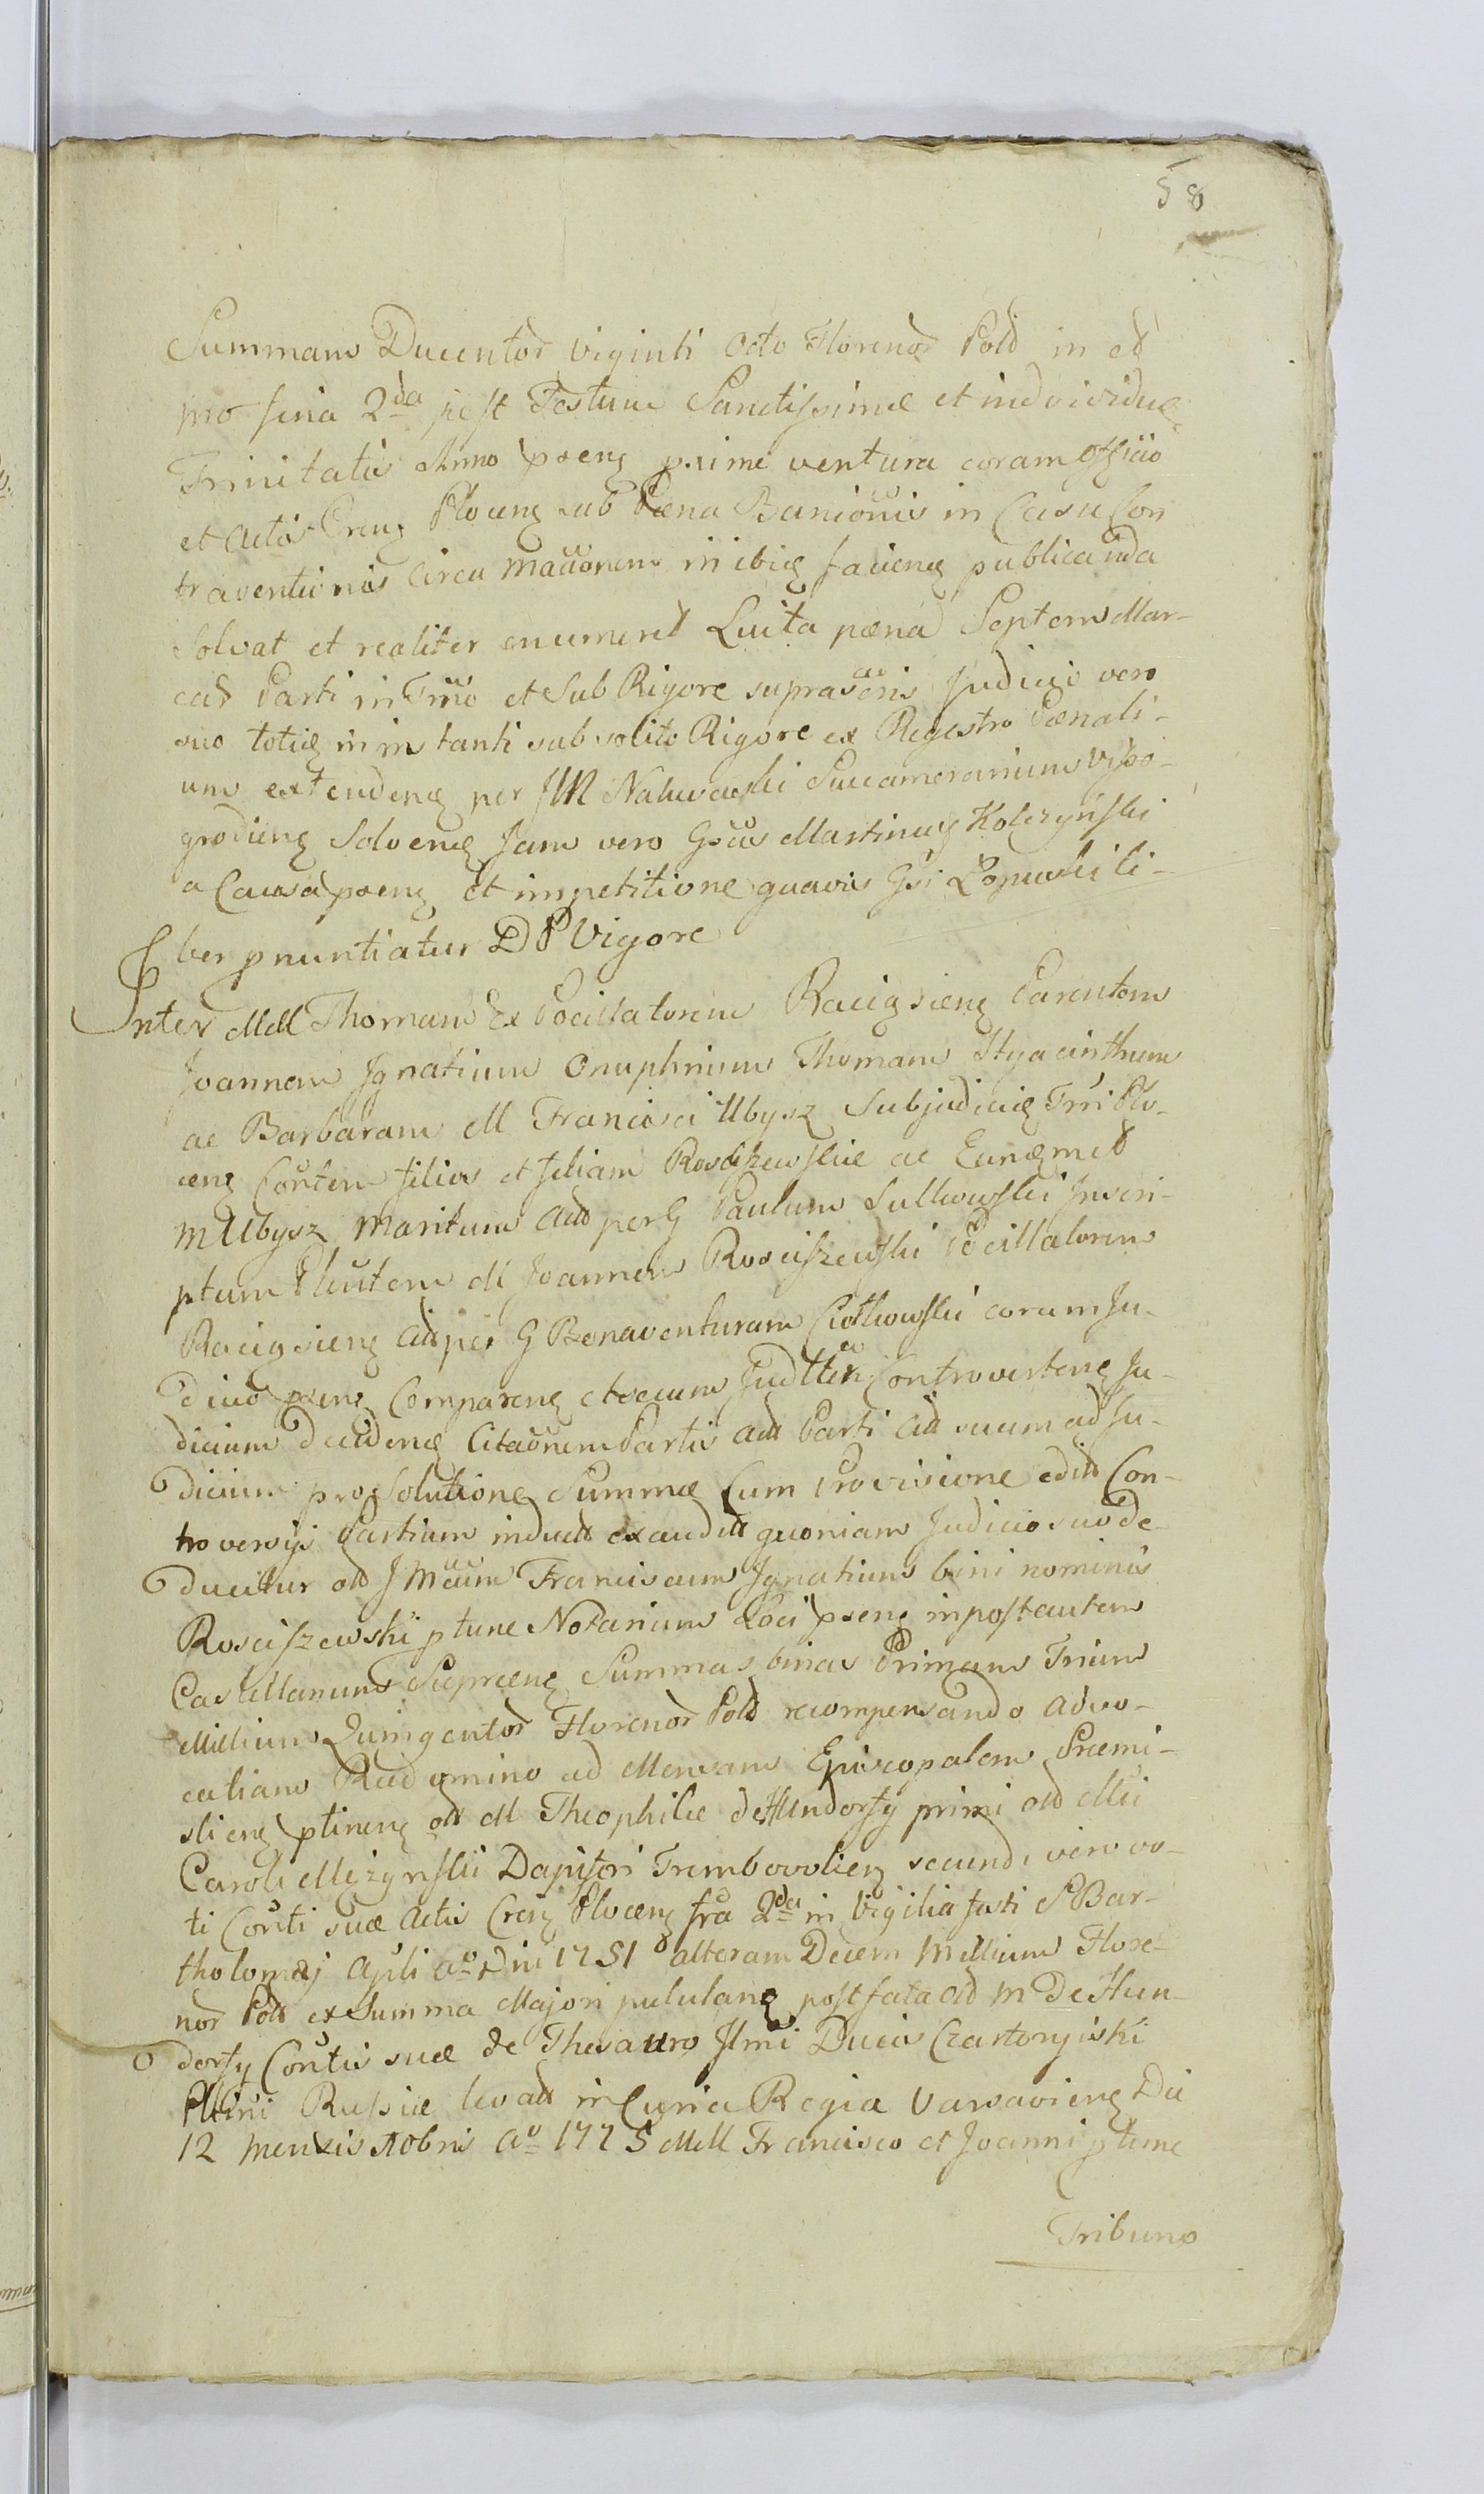 58
Summam Ducentor Viginti Octo Florenor Pold in et
pro feria 2da post Festum Sanctissimæ et individuæ
Trinitatis Anno præsens proxime ventura coram Officio
et Actis Crens Plocens sub Pæna Banionis in Casu Con
traventionis circa maãonem inibiq faciens publicanda
Solvat et realiter enumeret Luita pæna Septem Mar-
car Parti in Tmo et Sub Rigore suprascris Judicio vero
suo totiq in instanti sub solito Rigore ex Regestro Pænali-
um extendens per JM Nakwaski Succamerarium Visso-
grodiens Solvens Jam vero Gsus Martinus Kolczynski
a Causa præsens et impetitione quavis Gsi Łopuski li-
ber pnuntiatur DP Vigore
Inter MM Thomam Ex Pocillatorem Raciąsiens Parentem
Joannem Ignatium Onuphrium Thomam Hyacinthum
ac Barbaram M Francisci Ubysz Subjudicis Trri Plo-
cens Contem filios et filiam Rosciszewskie ac Eundmet
M Ubysz Maritum Act per G Paulum Sulkowski Inscri-
ptum Plentem M Joannem Rosciszewski Pocillatorem
Raciąsiens Cit per G Bonaventuram Ciołkowski coram Ju-
dicio præsens Comparens et secum Judltr Controvertens Ju-
dicium decidens Citaõnem Partis Act Parti Cit suum ad Ju-
dicium pro Solutione Summæ Cum Provisione edit Con-
troversijs Partium induct exaudit quoniam Judicio suo de-
ducitur ad JMcum Franciscum Ignatium bini nominis
Rosciszewski p tunc Notarium Loci præsens inpost autem
Castellanum Sieprcens Summas binas Primam Trium
Millium Quingentor Florenor Pold recompensando advo-
catiam Radymino ad Mensam Episcopalem Præmi-
sliens ptinens ad M Theophile de Hundorsy primi ad Mci
Caroli Mężynskii Dapiferi Trembovoliens secundi vero vo-
ti Conti suæ Actis Crens Plocens fra 2da in Vigilia festi S Bar-
tholomæj Apli ao Dni 1751 alteram Decem Millium Flore-
nor Pold ex Summa Majori pululans post fata ad M De Hun-
dorsy Contis suæ de Thesauro Jlmi Ducis Czartoryiski
Pltini Russiæ levatt in Curia Regia Varsaviens Die
12 Mensis Aobris ao 1775 MM Francisco et Joanni p tunc
Tribuno